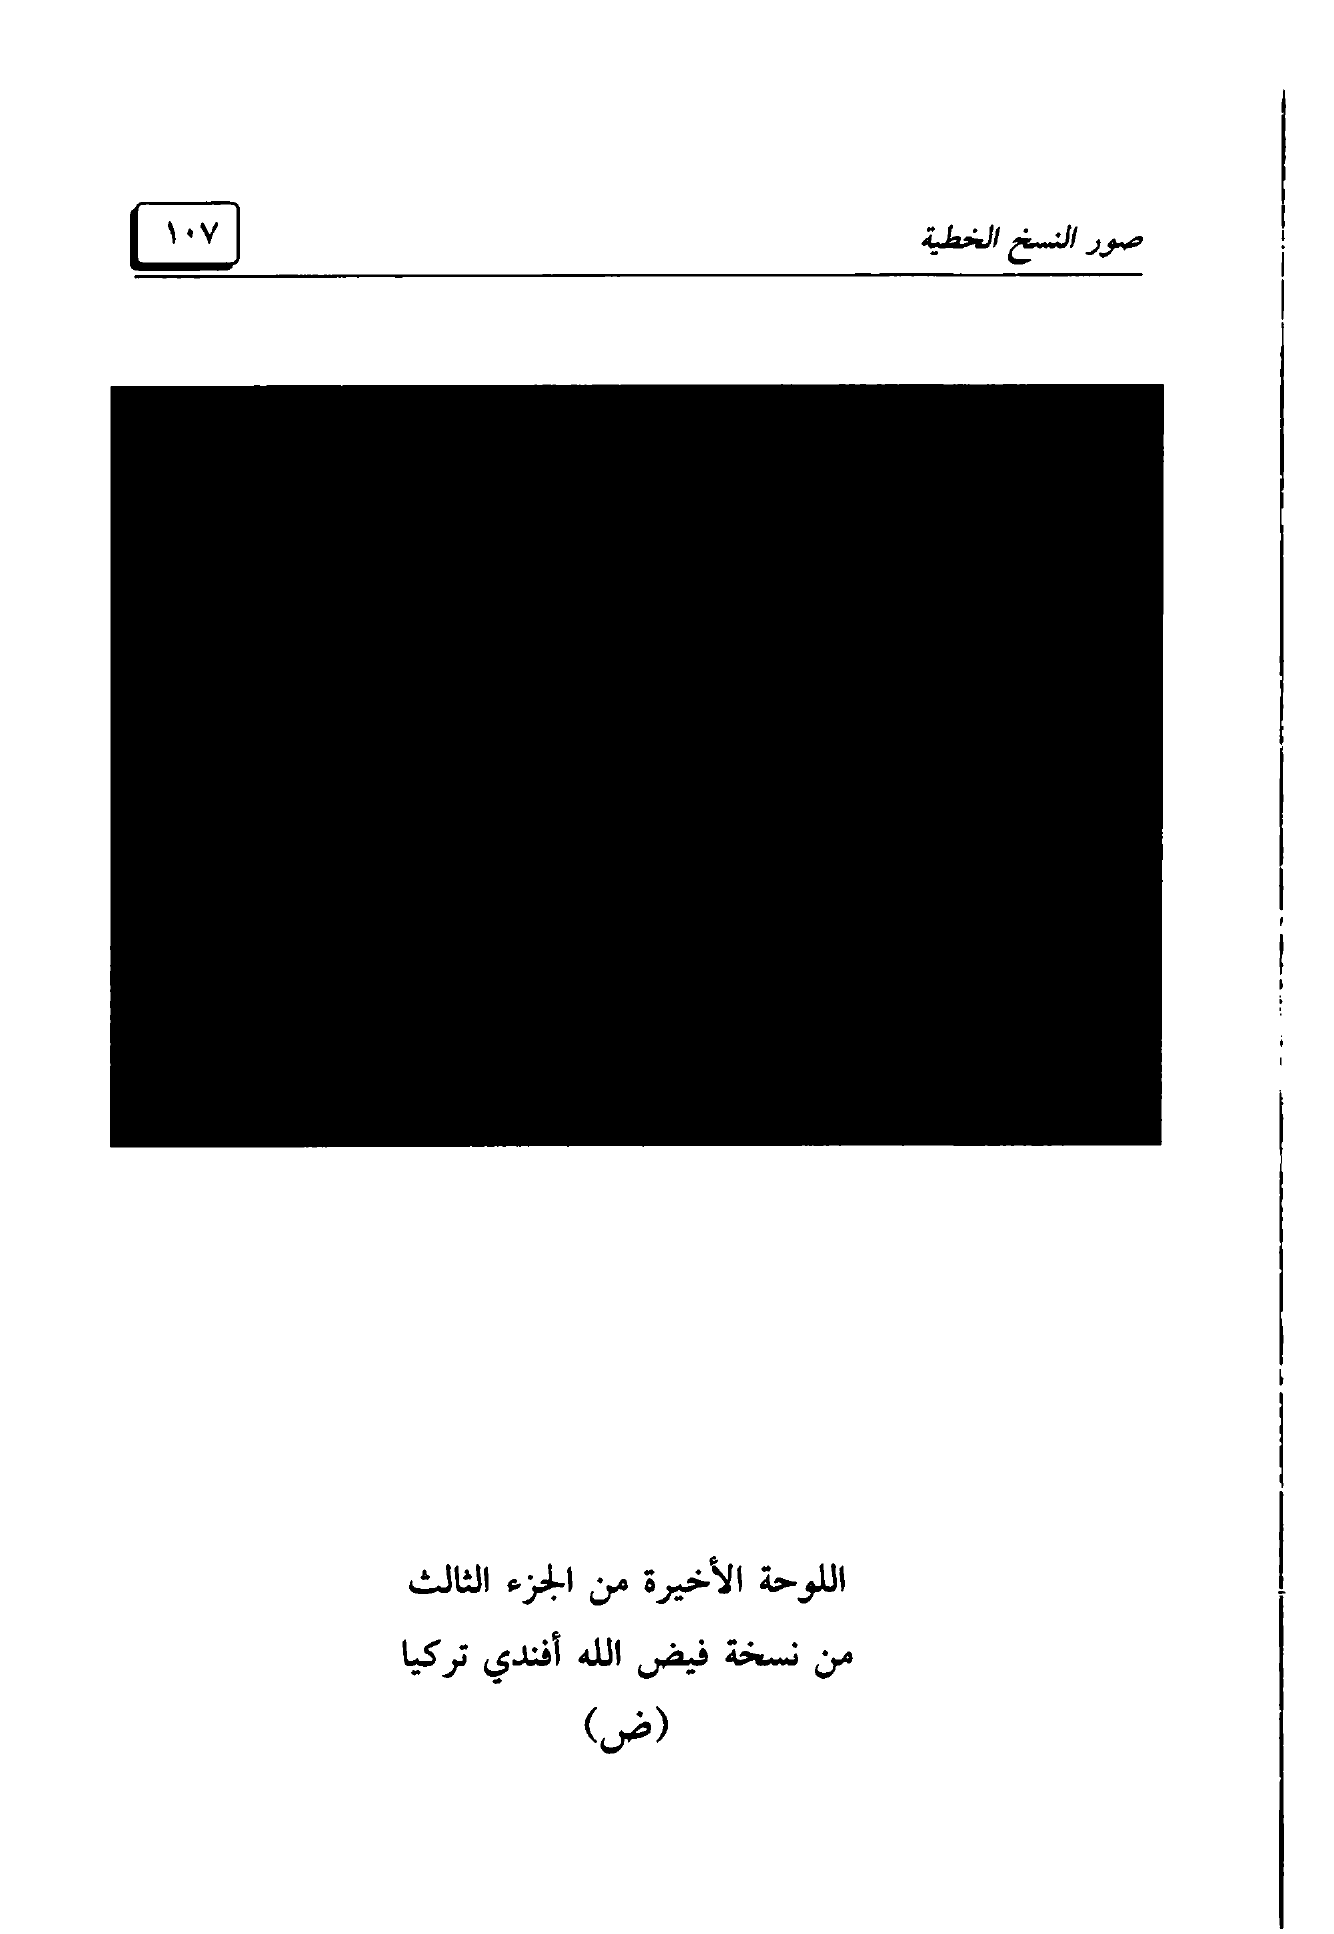 صور النسخ الخطية
١٠٧
اللوحة الأخيرة من الجزء الثالث
من نسخة فيض الله أفندي تركيا
(ض)